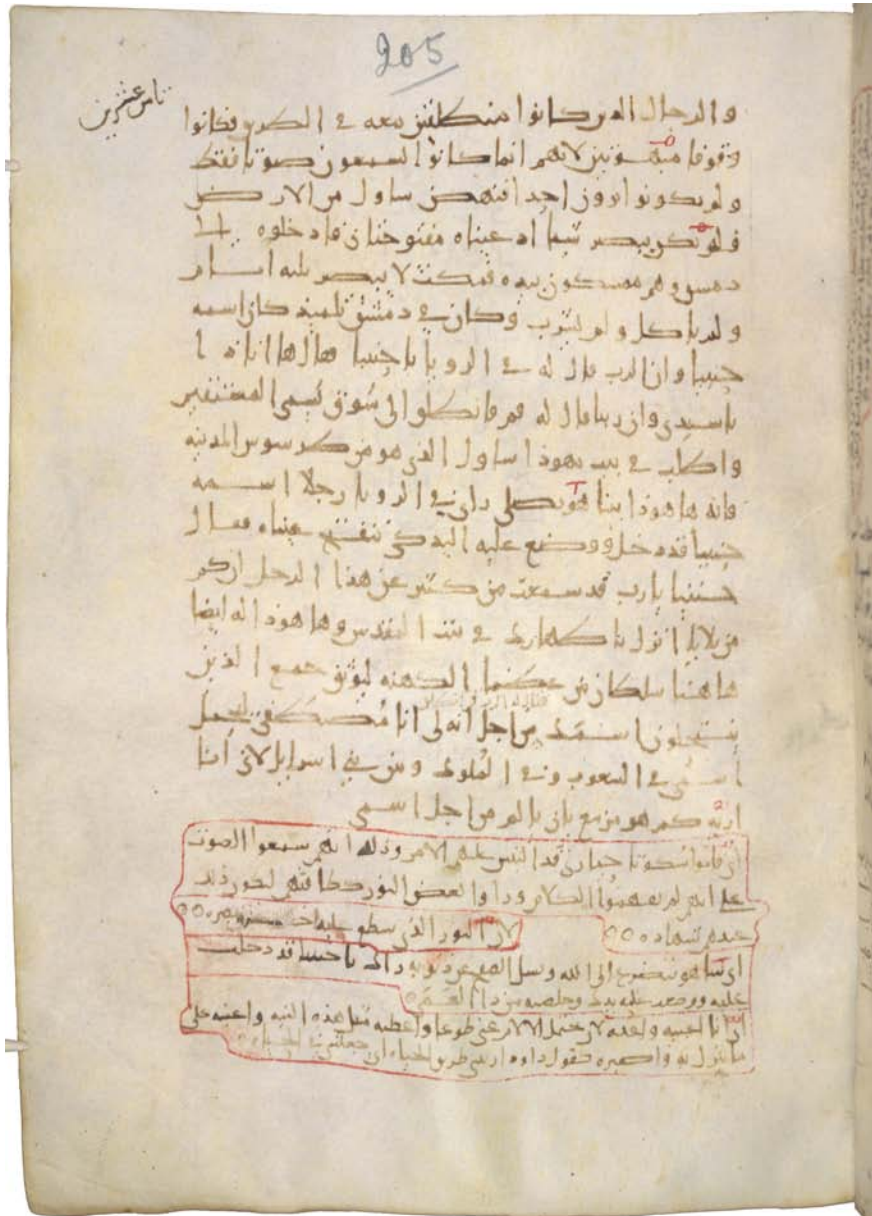 205
ثامن عشرين
والرجال الدين كانوا منطلقين معه في الطريق فكانوا
وقوفا مبهوتين لانهم انما كانوا يسمعون صوتا فقط
ولم يكونوا يرون احد افنهض ساول من الارض
فلم يكن يبصر شيا اد عيناه مفتوحتان فادخلوه الى
دمسق وهم ممسكون بيده فمكث لا يبصر ثلثه ايام
ولم ياكل ولم يشرب وكان في دمشق تلميذ كان اسمه
حننيا وان الرب قال له في الرويا يا حننيا فقال ها اناذه ا
يا سيدي وان ربنا قال له قم فانطلق الى سوق يسمى المستقيم
واطلب في بيت يهوذا ساول الذي هو من طرسوس المدينه
فانه هاهوذا بينا هو يصلي راى في الرويا رجلا اسمه
حننيا قد دخل ووضع عليه اليد كي تنفتح عيناه فقال
حننيا يا رب قد سمعت من كثير عن هذا الرجل اركم
من بلايا انزل باطهارك في بيت المقدس وهاهوذا له ايضا
هاهنا سلطان من عظما الكهنه ليوثق جمع الذين
اسمك من اجل انه لي انا مصطفى ليحمل
اسمي في الشعوب وفي الملوك وبين بني اسرايل لاني انا
اريه كم هو مزمع بان يالم من اجل اسمي
اي كانوا سكوتا حيارى قد التبس عليهم الامر وذلك انهم سمعوا الصوت
على انهم لم يفهموا الكلام وراوا بعض النور ليكون ذلك
عندهم شهاده
لان النور الذي سطع عليه بصره
اي هو يتضرع الى الله ويسل الصفح عن ذنوبه راى يا حننيا قد دخلت
عليه ووضعت عليه يدك وخلصته من دا العمى
اي انا اجبته واعنه لان يحتمل الالام عني طوعا واعطيه مثل هذه النيه واعينه على
ما ينزل به واصبره كقول داود اريتني طريق الحياه اي جعلتني الحياه